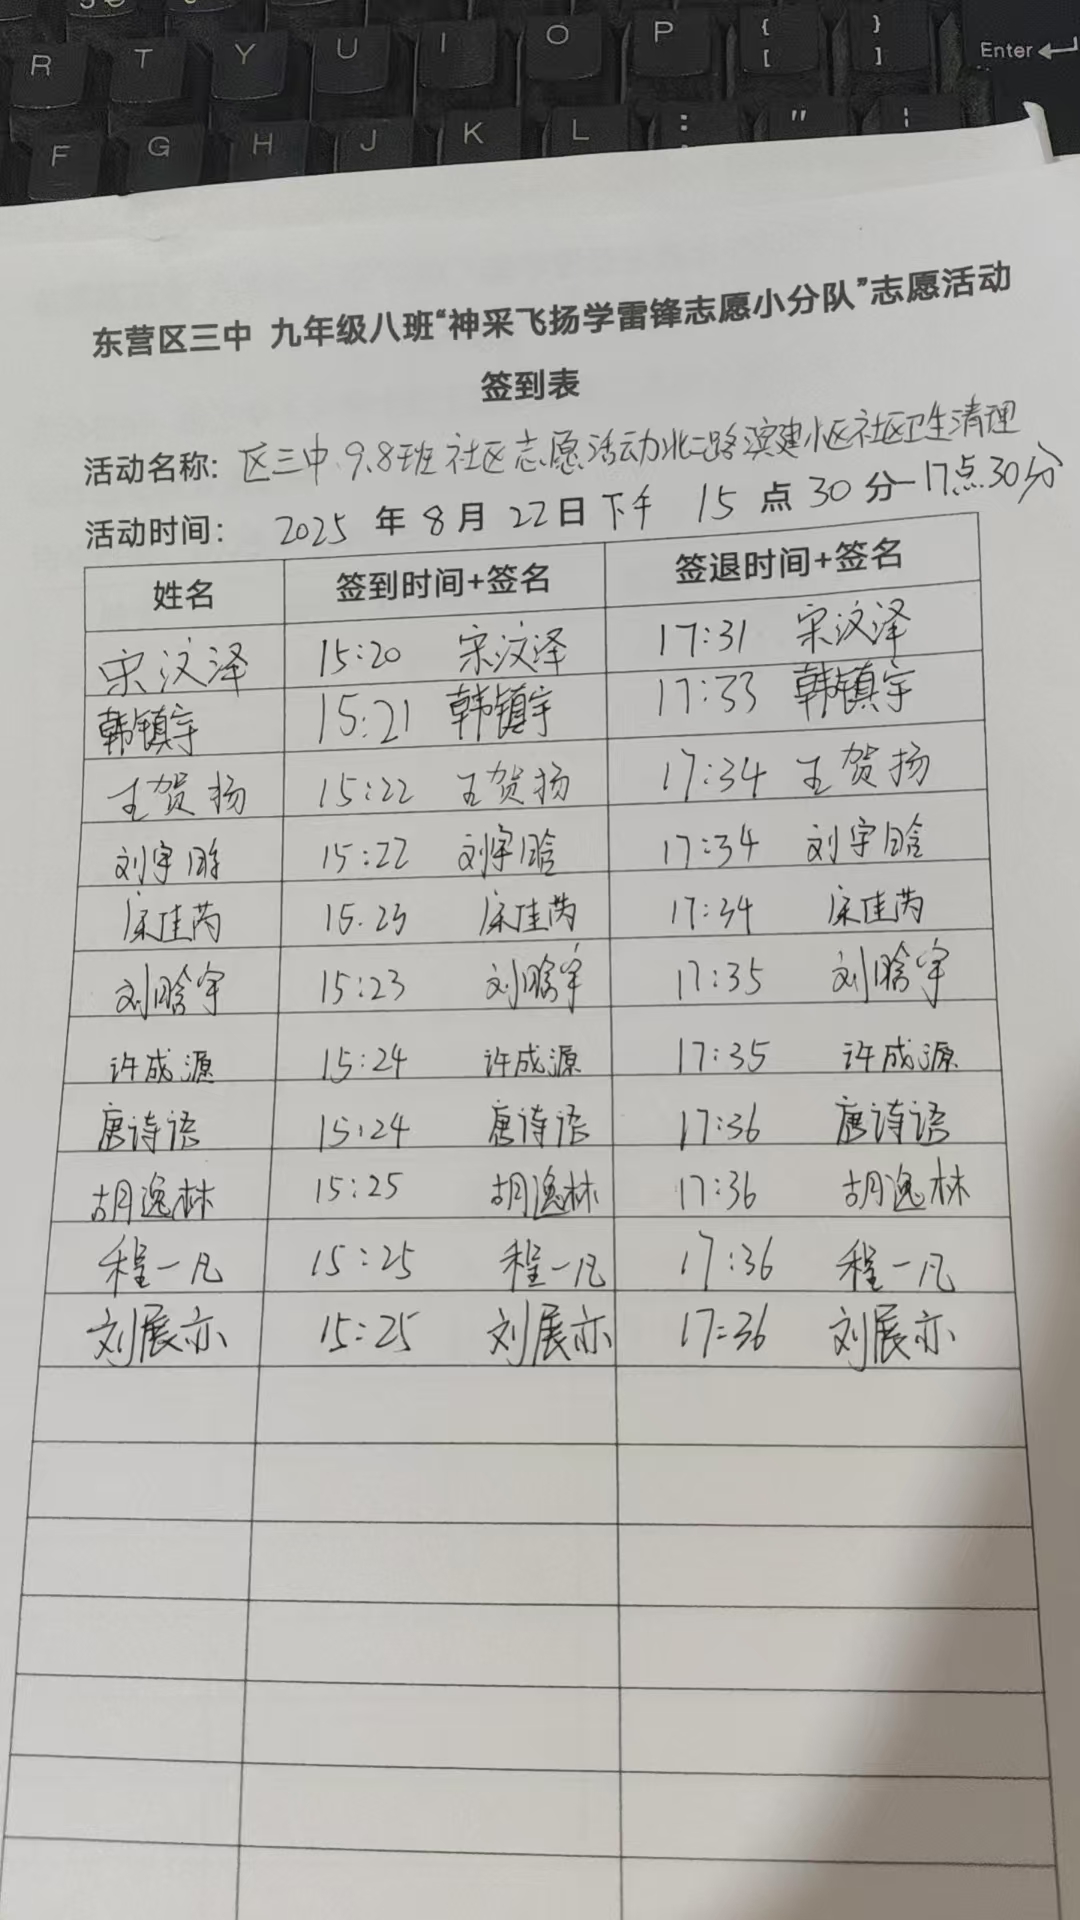 R T Y U I O P { [ } ] Enter
F G H J K L : ; "
东营区三中 九年级八班“神采飞扬学雷锋志愿小分队”志愿活动
签到表
活动名称: 区三中9.8班社区志愿活动北二路滨建小区社区卫生清理
活动时间: 2025 年 8 月 22 日 下午 15 点 30 分-17点30分
姓名 签到时间+签名 签退时间+签名
宋汶泽 15:20 宋汶泽 17:31 宋汶泽
韩镇宇 15:21 韩镇宇 17:33 韩镇宇
王贺扬 15:22 王贺扬 17:34 王贺扬
刘宇晗 15:22 刘宇晗 17:34 刘宇晗
佳芮 15:23 佳芮 17:34 佳芮
刘晗宇 15:23 刘晗宇 17:35 刘晗宇
许成源 15:24 许成源 17:35 许成源
唐诗语 15:24 唐诗语 17:36 唐诗语
胡逸林 15:25 胡逸林 17:36 胡逸林
程一凡 15:25 程一凡 17:36 程一凡
刘展亦 15:25 刘展亦 17:36 刘展亦